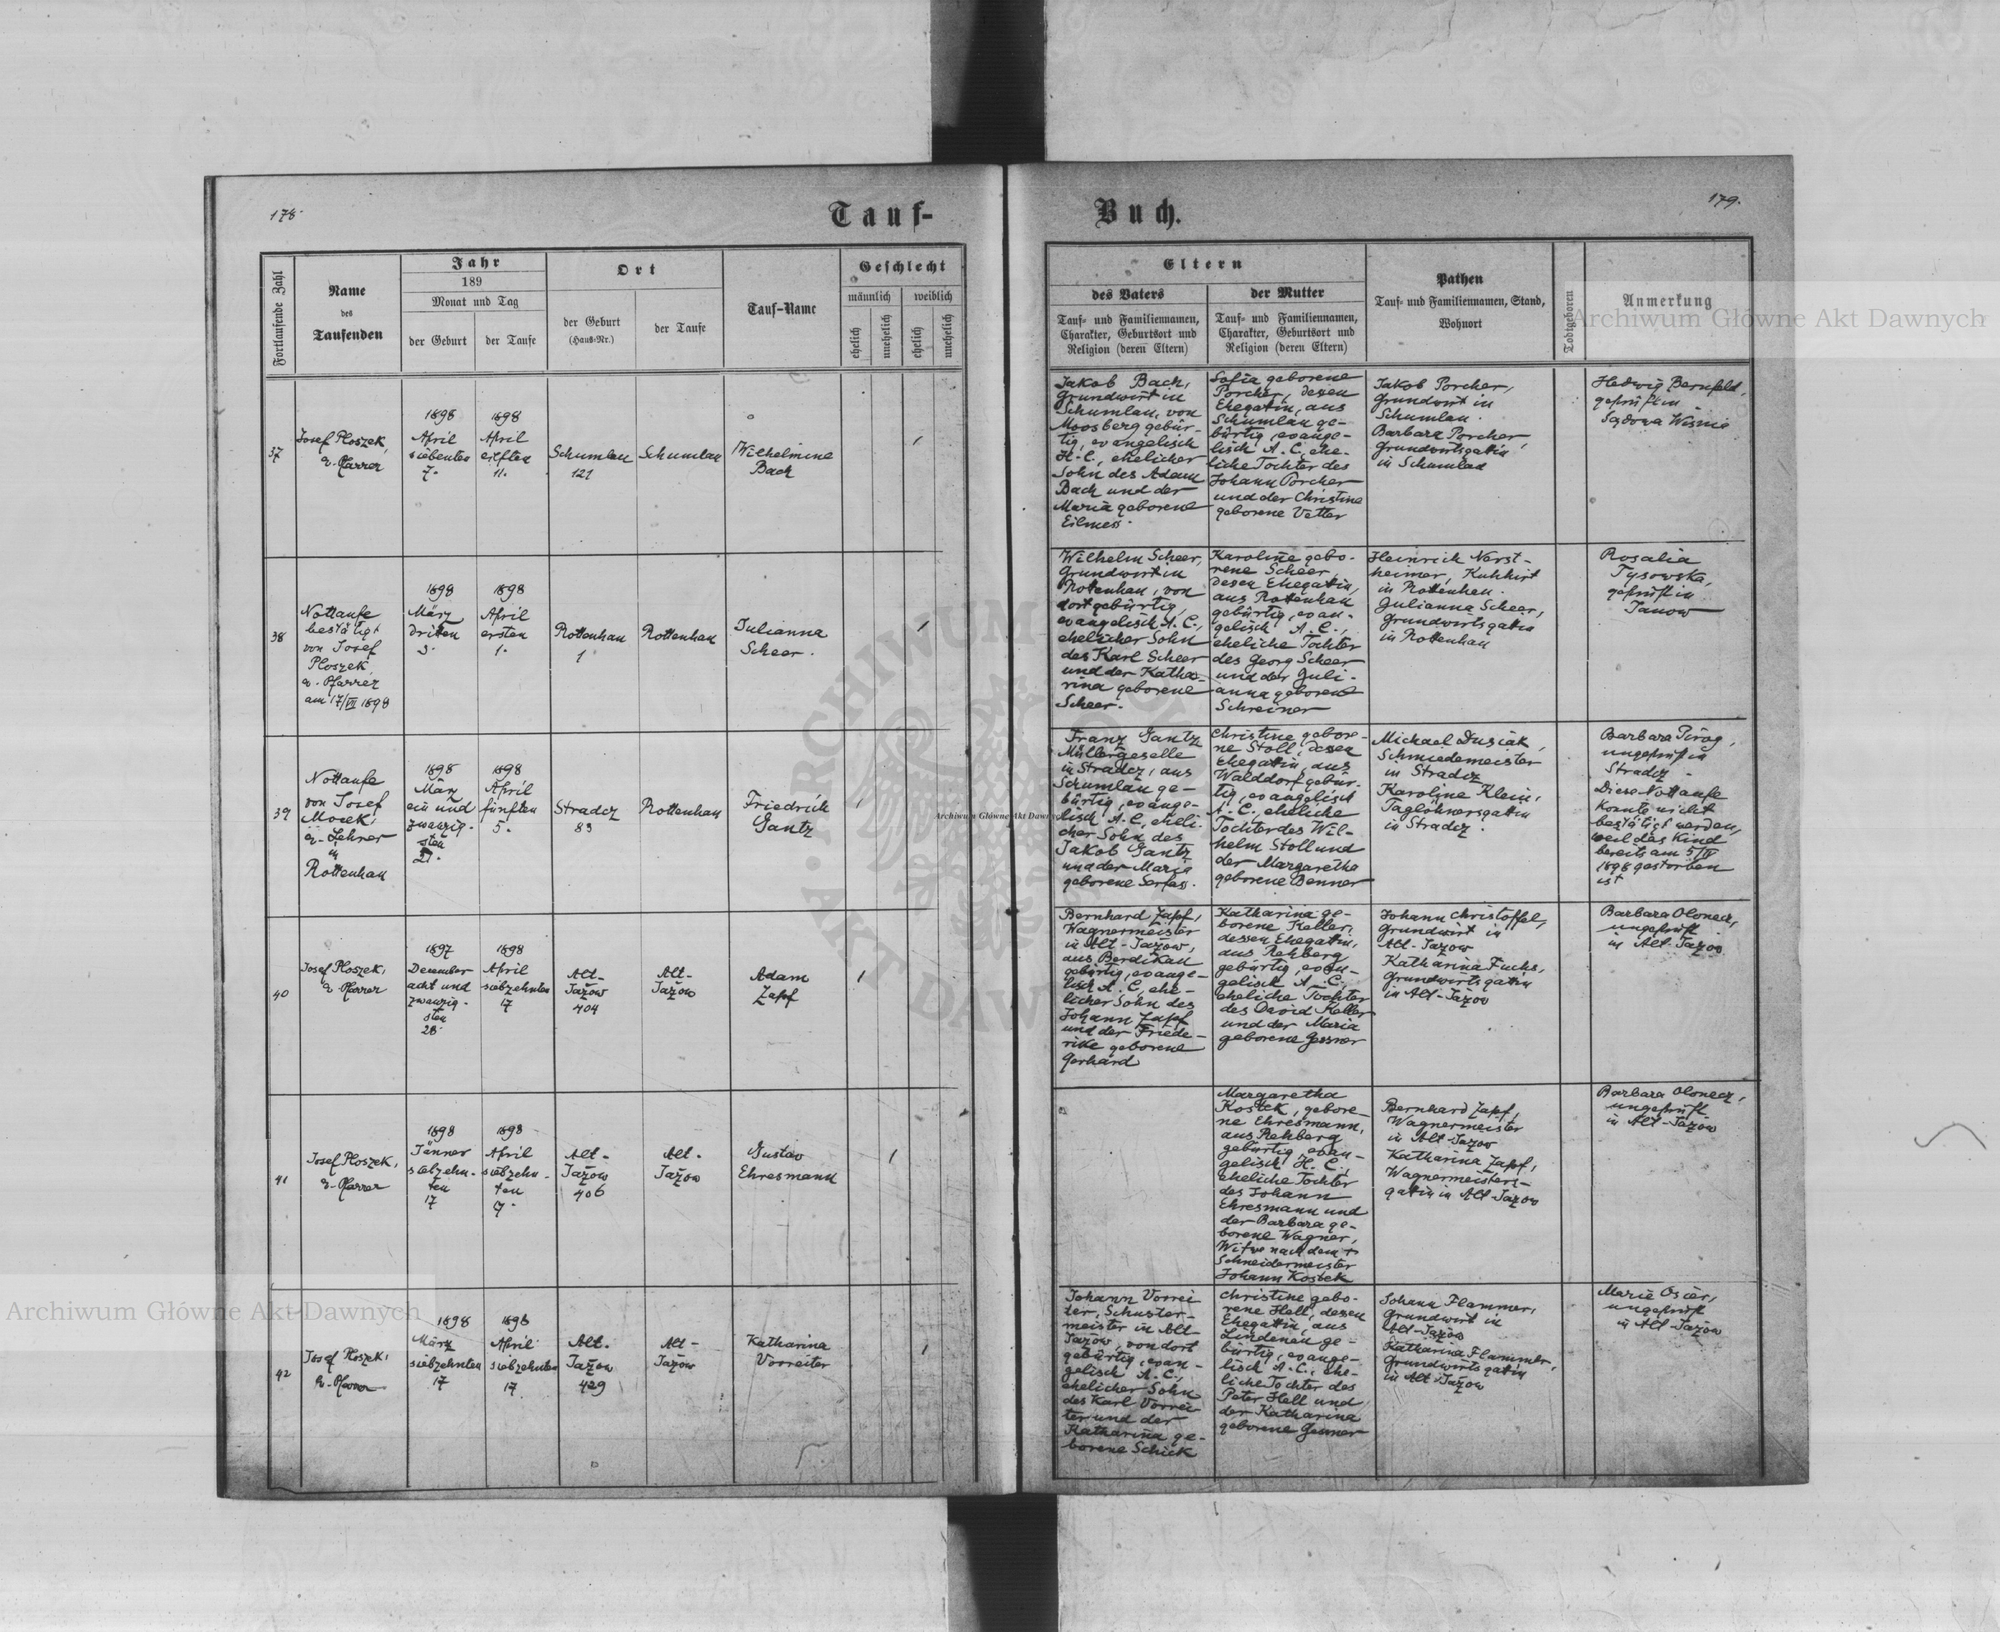 178.
Tauf-
Buch.
179.
Fortlaufende Zahl
Name
des
Taufenden
Jahr
189
Monat und Tag
der Geburt
der Taufe
Ort
der Geburt
(Haus-Nr.)
der Taufe
Tauf-Name
Geschlecht
männlich
weiblich
ehelich
unehelich
ehelich
unehelich
Eltern
des Vaters
Tauf- und Familiennamen,
Charakter, Geburtsort und
Religion (deren Eltern)
der Mutter
Tauf- und Familiennamen,
Charakter, Geburtsort und
Religion (deren Eltern)
Pathen
Tauf- und Familiennamen, Stand,
Wohnort
Todtgeboren
Anmerkung
37
Josef Ploszek,
Pfarrer
1898
April
siebenten
7.
1898
April
eilften
11.
Schumlau
121
Schumlau
Wilhelmine
Bach
Jakob Bach,
Grundwirt in
Schumlau, von
Moosberg gebür-
tig, evangelisch
H.C., ehelicher
Sohn des Adam
Bach und der
Maria geborene
Eilmess.
Sofia geborene
Porcher, dessen
Ehegatin, aus
Schumlau ge-
bürtig, evange-
lisch A.C., ehe-
liche Tochter des
Johann Porcher
und der Christine
geborene Vetter
Jakob Porcher,
Grundwirt in
Schumlau.
Barbara Porcher,
Grundwirtsgatin
in Schumlau
Hedwig Bernfeld,
geprüft in
Sądowa Wisznia
38
Nottaufe
bestätigt
von Josef
Ploszek
Pfarrer
am 17/VII 1898
1898
März
dritten
3.
1898
April
ersten
1.
Rottenhan
1
Rottenhan
Julianna
Scheer.
Wilhelm Scheer,
Grundwirt in
Rottenhan, von
dort gebürtig,
evangelisch A.C.,
ehelicher Sohn
des Karl Scheer
und der Katha-
rina geborene
Scheer.
Karoline gebo-
rene Scheer,
dessen Ehegatin,
aus Rottenhan
gebürtig, evan-
gelisch A.C.,
eheliche Tochter
des Georg Scheer
und der Juli-
anna geborene
Schreiner
Heinrich Norst-
heimer, Kuhhirt
in Rottenhan.
Julianna Scheer,
Grundwirtsgatin
in Rottenhan
Rosalia
Tysowska,
geprüft in
Janow
39
Nottaufe
von Josef
Mocek,
Lehrer
in
Rottenhan
1898
März
ein und
zwanzig-
sten
21.
1898
April
fünften
5.
Stradcz
83
Rottenhan
Friedrich
Gantz
Franz Gantz
Müllergeselle
in Stradcz, aus
Schumlau ge-
bürtig, evange-
lisch A.C., eheli-
cher Sohn des
Jakob Gantz
und der Maria
geborene Serfass.
Christine gebore-
ne Stoll, dessen
Ehegatin, aus
Walddorf gebür-
tig, evangelisch
A.C. eheliche
Tochter des Wil-
helm Stoll und
der Margaretha
geborene Benner
Michael Dusiak,
Schmiedemeister
in Stradcz
Karoline Klein,
Taglöhnersgattin
in Stradcz.
Barbara Pirog,
ungeprüft in
Stradcz.
Diese Nottaufe
konnte nicht
bestätigt werden,
weil das Kind
bereits am 5/IV
1898 gestorben
ist
40
Josef Ploszek,
Pfarrer
1897
December
acht und
zwanzig-
sten
28.
1898
April
siebzehnten
17
Alt-
Jažow
404
Alt-
Jažow
Adam
Zapf
Bernhard Zapf,
Wagnermeister
in Alt-Jazow,
aus Berdikau
gebürtig, evange-
lisch A.C., ehe-
licher Sohn des
Johann Zapf
und der Friede-
rike geborene
Gerhard
Katharina ge-
borene Keller,
dessen Ehegatin,
aus Rehberg
gebürtig, evan-
gelisch A.C.,
eheliche Tochter
des David Keller
und der Maria
geborene Gessner
Johann Christoffel,
Grundwirt in
Alt-Jazow
Katharina Fuchs,
Grundwirtsgatin
in Alt-Jažow
Barbara Olonecz,
ungeprüft
in Alt-Jazow
41
Josef Ploszek,
Pfarrer
1898
Jänner
siebzehn-
ten
17
1898
April
siebzehn-
ten
17.
Alt-
Jažow
406
Alt-
Jažow
Gustav
Ehresmann
Margaretha
Kostek, gebore-
ne Ehresmann,
aus Rehberg
gebürtig, evan-
gelisch H.C.,
eheliche Tochter
des Johann
Ehresmann und
der Barbara ge-
borene Wagner,
Witwe nach dem †
Schneidermeister
Johann Kostek
Bernhard Zapf,
Wagnermeister
in Alt-Jazow
Katharina Zapf,
Wagnermeisters-
gatin in Alt-Jazow
Barbara Olonecz,
ungeprüft
in Alt-Jazow
42
Josef Ploszek,
Pfarrer
1898
März
siebzehnten
17
1898
April
siebzehnten
17.
Alt-
Jažow
429
Alt-
Jazow
Katharina
Vorreiter
Johann Vorrei-
ter, Schuster-
meister in Alt-
Jazow, von dort
gebürtig, evan-
gelisch A.C.,
ehelicher Sohn
des Karl Vorrei-
ter und der
Katharina ge-
borene Schick
Christine gebo-
rene Hell, dessen
Ehegattin, aus
Lindenau ge-
bürtig, evange-
lisch A.C., ehe-
liche Tochter des
Peter Hell und
der Katharina
geborene Gesner
Johann Flammer,
Grundwirt in
Alt-Jažow
Katharina Flammer,
Grundwirtsgatin
in Alt-Jažow
Maria Osier,
ungeprüft
in Alt-Jažow
Archiwum Główne Akt Dawnych
Archiwum Główne Akt Dawnych
Archiwum Główne Akt Dawnych